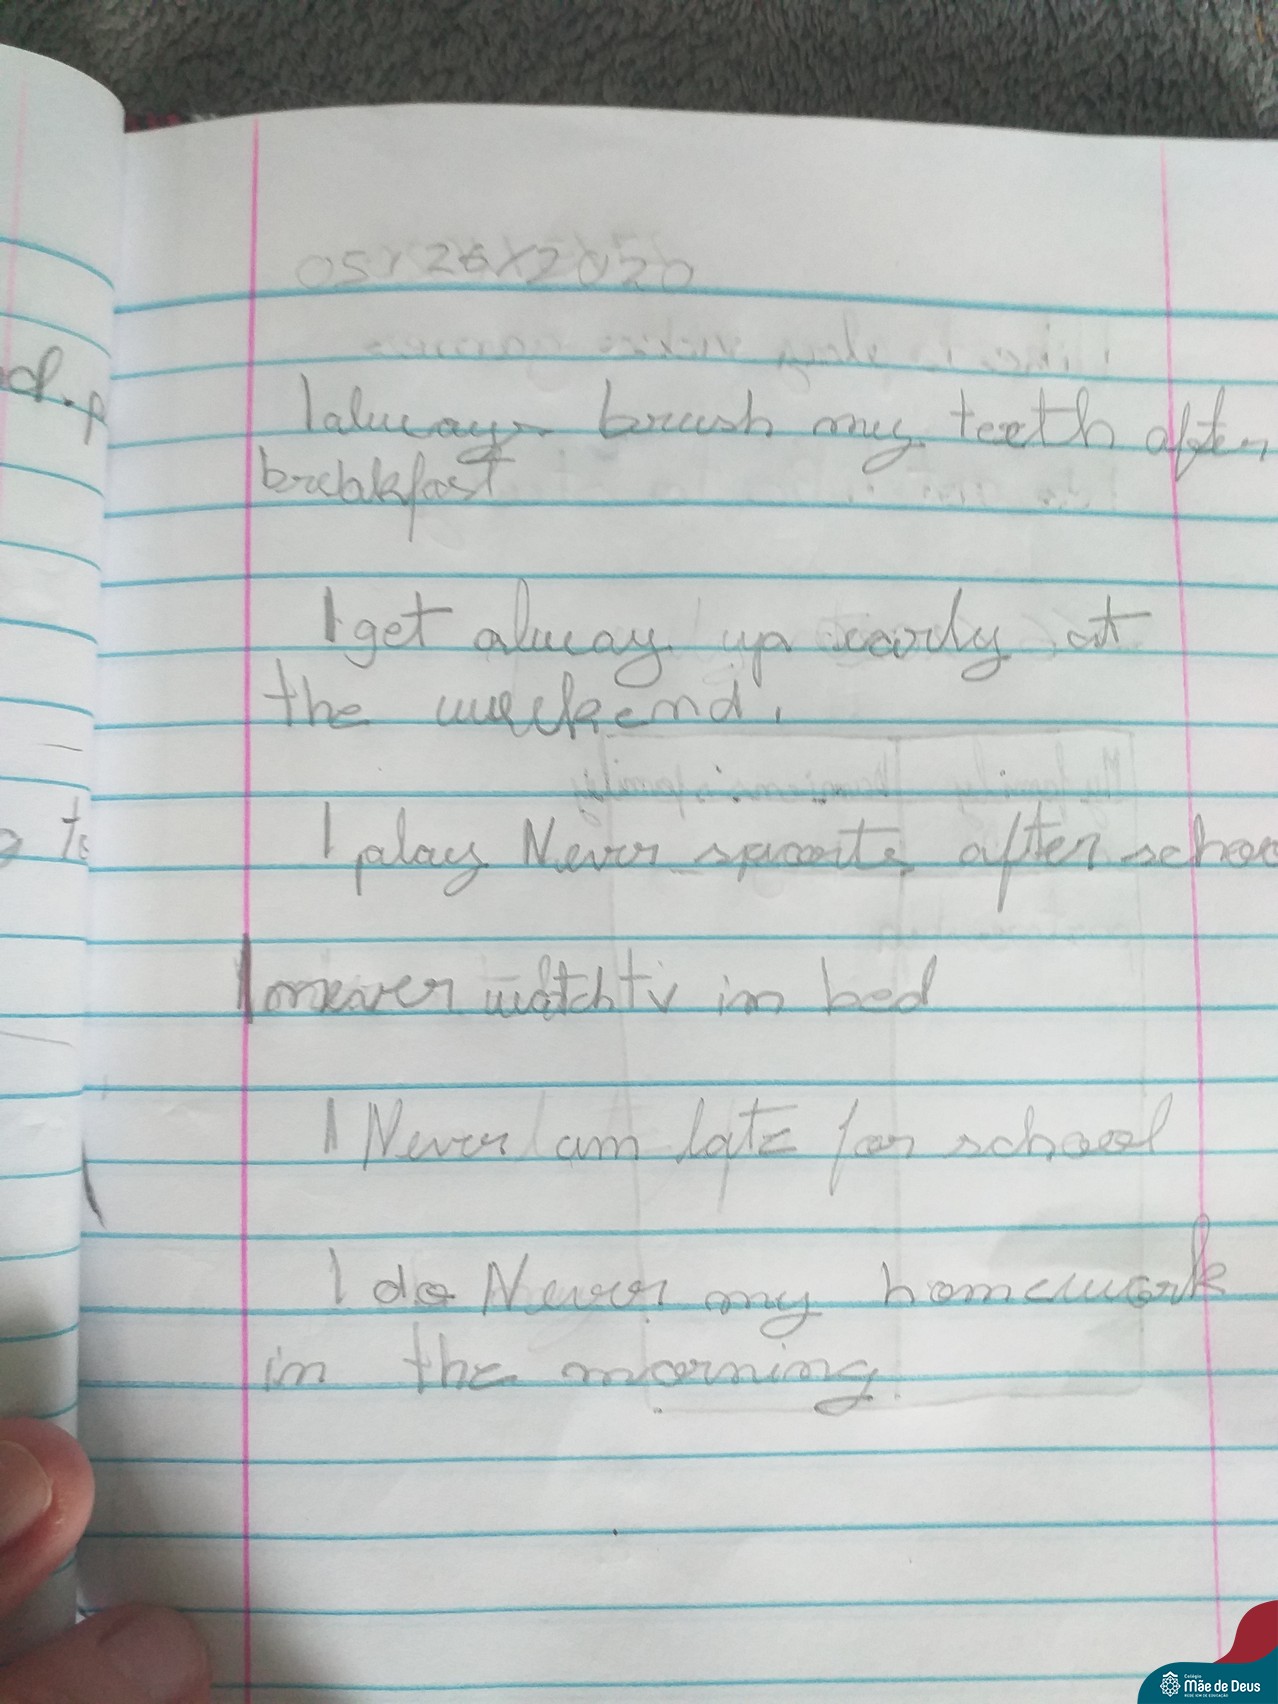 05/26/2020
d.p
I always brush my teeth after
breakfast
I get always up early at
the weekend.
to
I play Never sports after schoo
I never watch tv in bed
I Never am late for school
I do Never my homework
in the morning
My family
family
Colégio
Mãe de Deus
REDE ICM DE EDUCAÇÃO